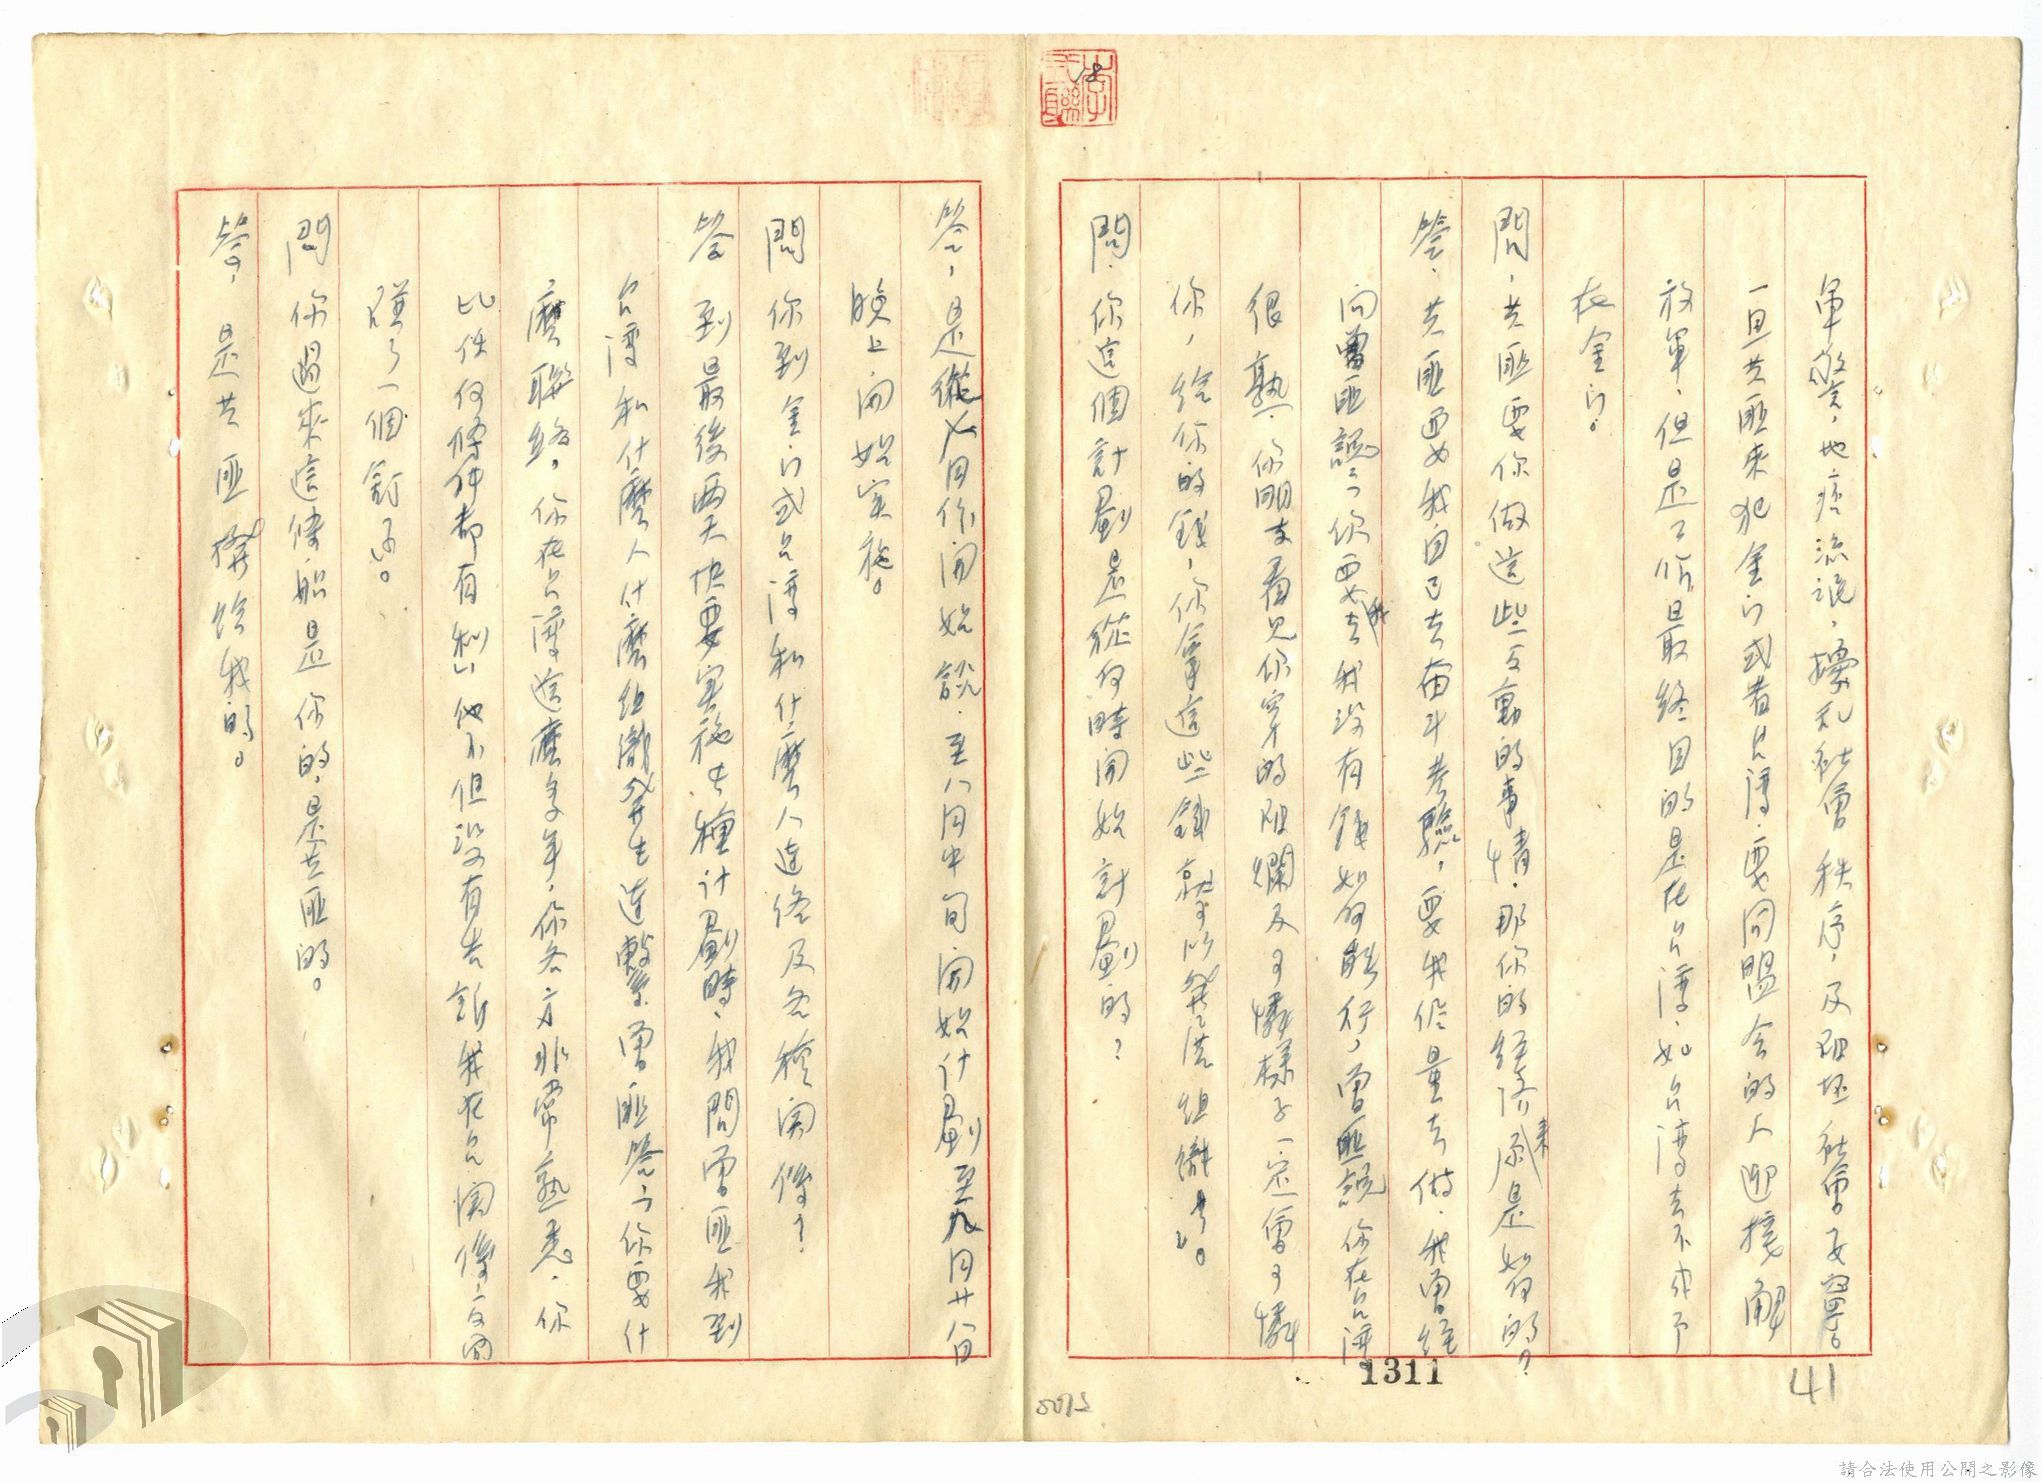 軍警，地痞流氓，擾乱社會秩序，及破坯社會安寧。
一旦共匪來犯金门或者台湾，要同盟会的人迎接解
放軍，但是工作最終目的是在台湾，如台湾去不成才
在金门。
問，共匪要你做這些互動的事情，那你的经济來源是如何的？
答，共匪要我自己去奋斗考驗，要我侭量去做，我曾经
向曾匪說：「你要我去我没有錢如何能行，曾匪說你在台湾
很熟，你朋友看見你穿的破爛及可憐樣子一定會可憐
你，给你的錢，你拿這些錢就可以发展組織」。
問，你這個計劃是從何時開始計劃的？
答，是從八月份開始談，至八月中旬開始计劃至九月廿八日
晚上開始实施。
問 你到金门或台湾和什麽人連絡及各種関係？
答 到最後两天快要实施這種计劃時，我問曾匪我到
台湾和什麽人什麽组織發生連繫曾匪答「你要什
麽聯絡，你在台湾這麽多年，你各方非常熟悉，你
比任何條件都有利」他不但没有告訴我在台関係，反而
碰了一個釘子。
問 你過來這條船是你的，是共匪的。
答，是共匪撥给我的。
1311
41
5075
18
請合法使用公開之影像